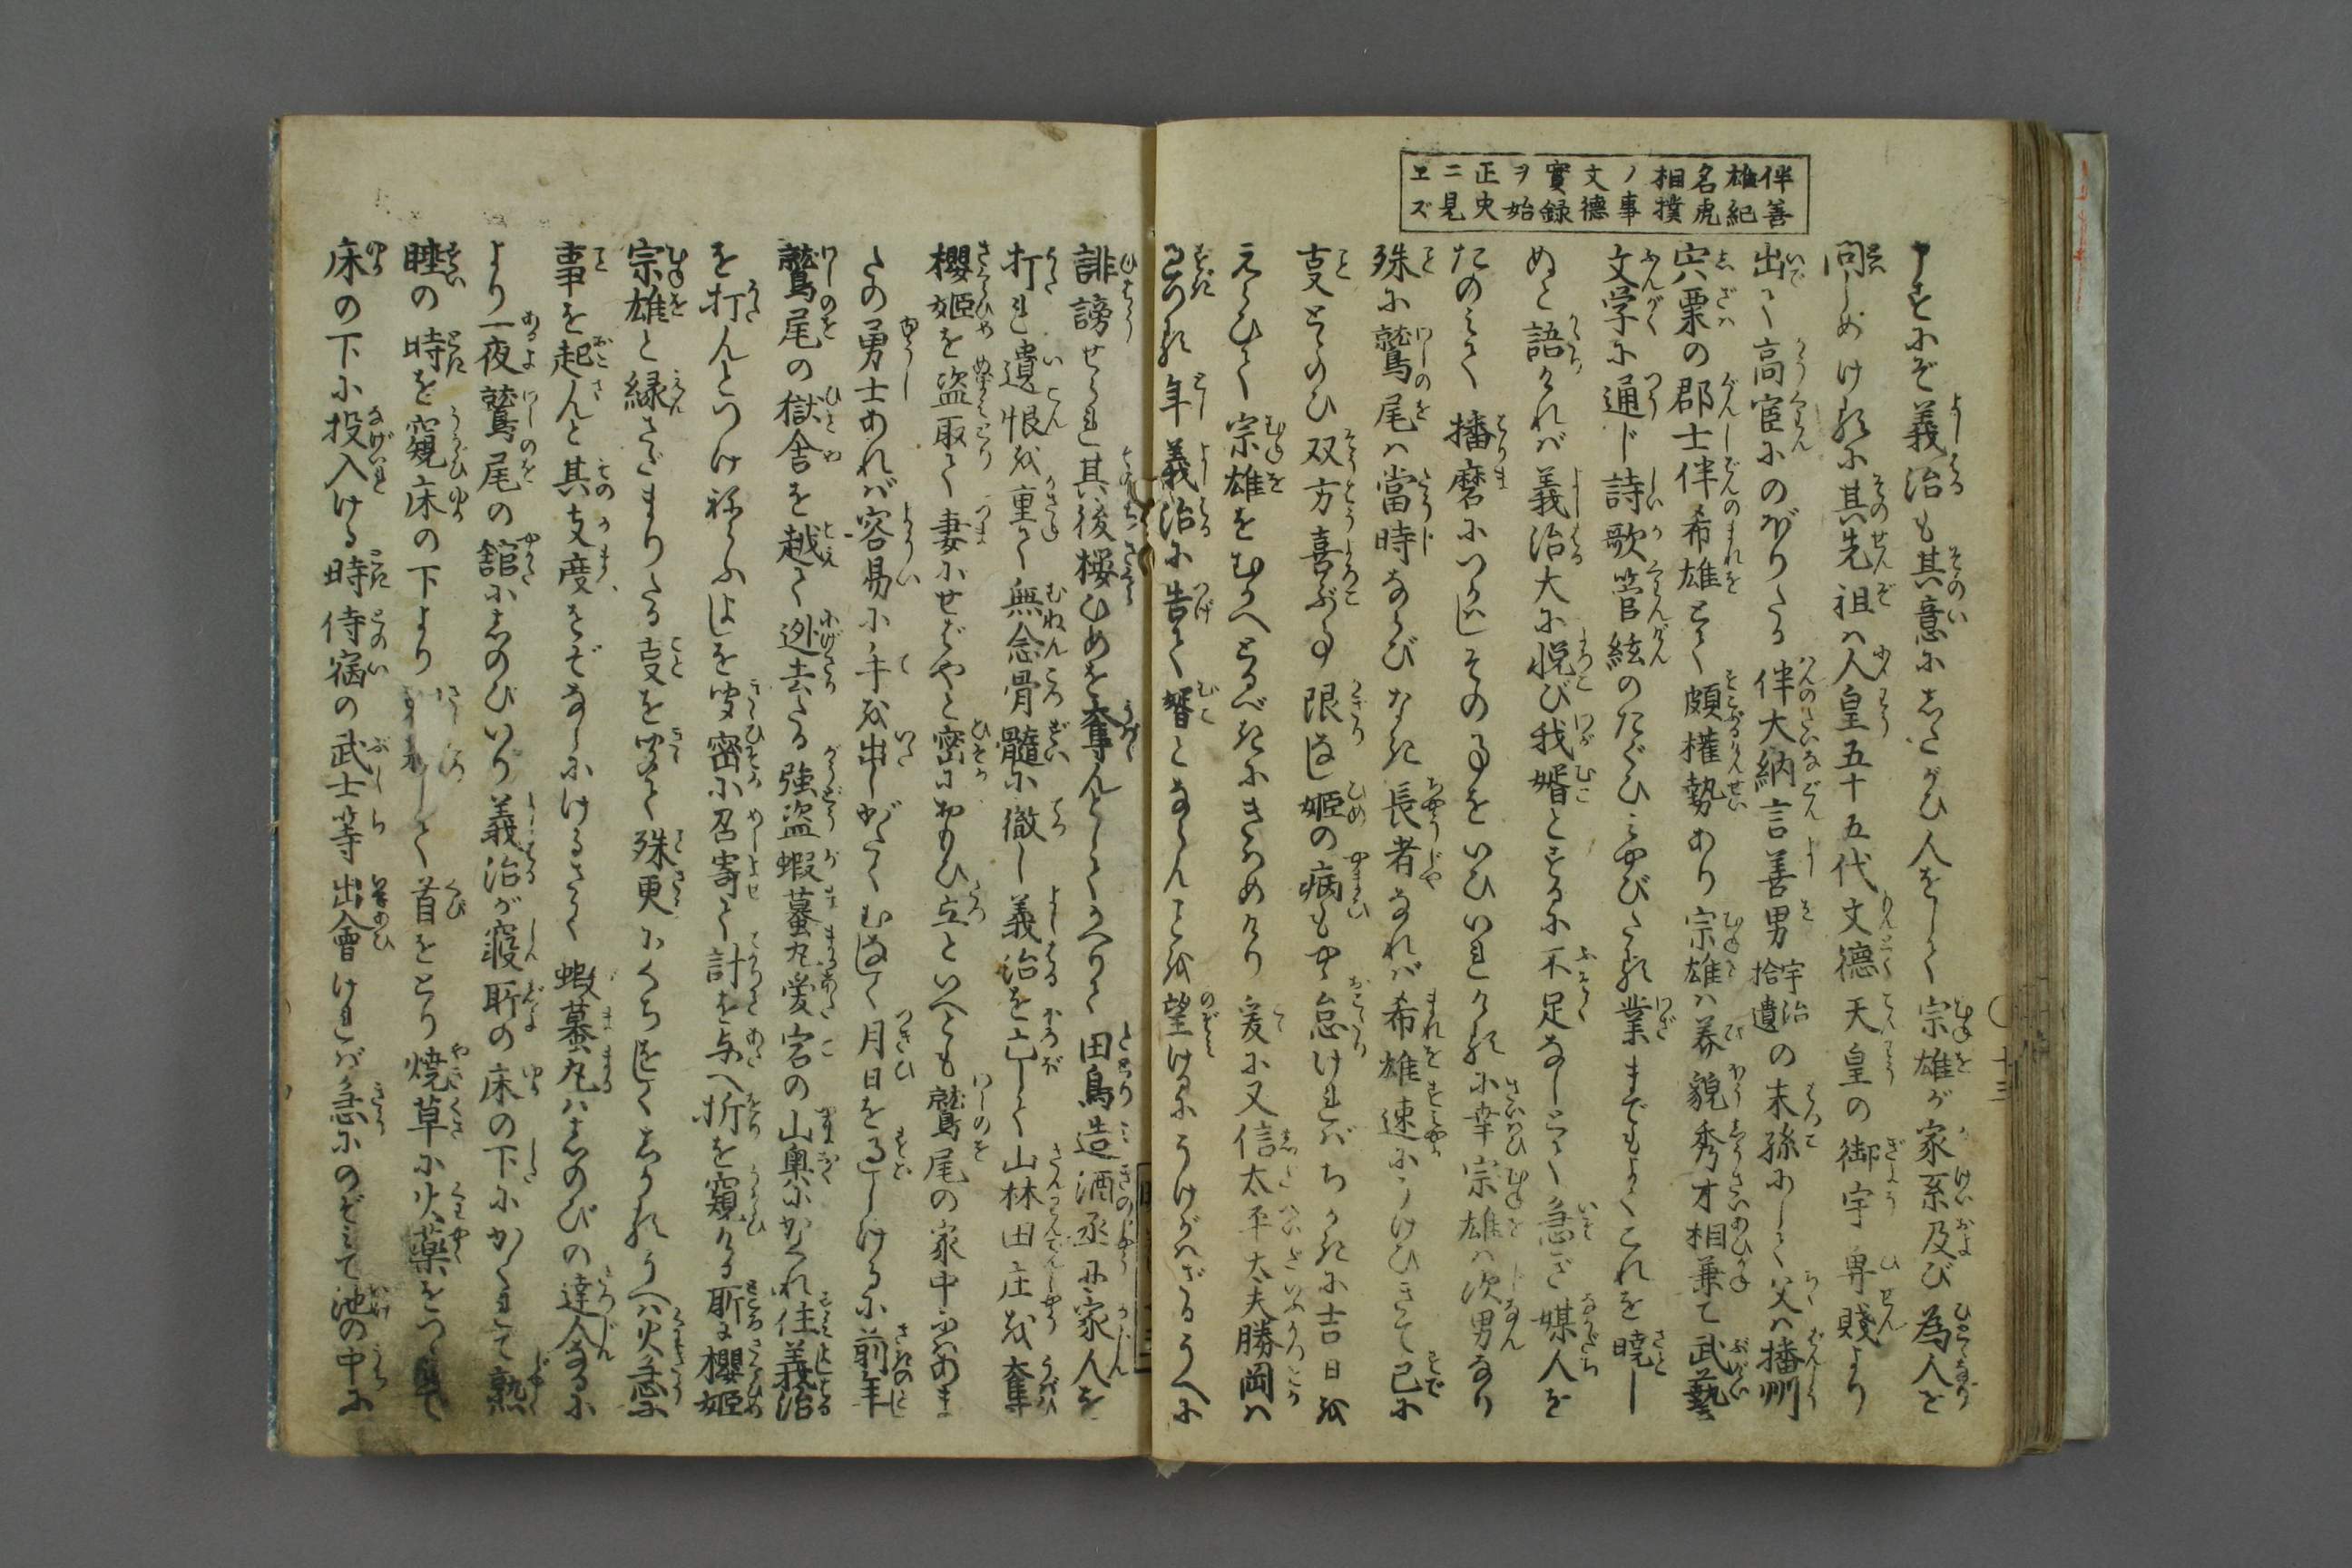 伴善
雄紀
名虎
相撲
ノ事
文德
實録
ヲ始
正史
ニ見
エズ
申すにぞ義治も其意にしたがひ人をして宗雄が家系及び為人を
問しめけるに其先祖ハ人皇五十五代文德天皇の御宇卑賤より
出て高宦にのぼりたる伴大納言善男宇治拾遺の末孫にして父ハ播州
宍粟の郡士伴希雄とて頗権勢あり宗雄ハ美貌秀才相兼て武藝
文学に通じ詩歌管絃のたぐひみやびたる業までもよくこれを暁し
ぬと語りければ義治大に悦び我婿とするに不足なしとて急ぎ媒人を
たのみて播磨にいたらしその事をいひいれけるに幸宗雄ハ次男なり
殊に鷲尾ハ當時ならびなき長者なれバ希雄速にうけひきて已に
事とゝのひ双方喜ぶ事限なし姫の病もやゝ怠ければちかきに吉日を
えらひて宗雄をむかへとるべきにきはめけり爰に又信太平太夫勝岡ハ
過つる年義治に告て婿とならんことを望けるにうけがハざるうへに
誹謗せられ其後桜ひめを奪んとしてかへりて田鳥造酒丞に家人を
打れ遺恨を重て無念骨髓に徹し義治を亡して山林田庄を奪
櫻姫を盗取て妻にせばやと密におもひ立といへども鷲尾の家中にハあま
たの勇士あれバ容易に手を出しがたくむなしく月日を過しけるに前年
鷲尾の獄舎を越て迯去たる強盗蝦蟇丸愛宕の山奥にかくれ住義治
を打んとつけねらふよしを聞密に召寄て計を与へ折を窺ける所に櫻姫
宗雄と縁さだまりたる事を聞て殊更にくちをしくおもひうへハ火急に
事を起んと其支度をぞなしにけるさて蝦蟇丸ハしのびの達人なるに
より一夜鷲尾の舘にしのびいり義治が寝所の床の下にかくれて熟
睡の時を窺床の下より刺殺して首をとり焼草に火薬をつゝみて
床の下に投入ける時侍宿の武士等出會けれバ急にのぞみて池の中に